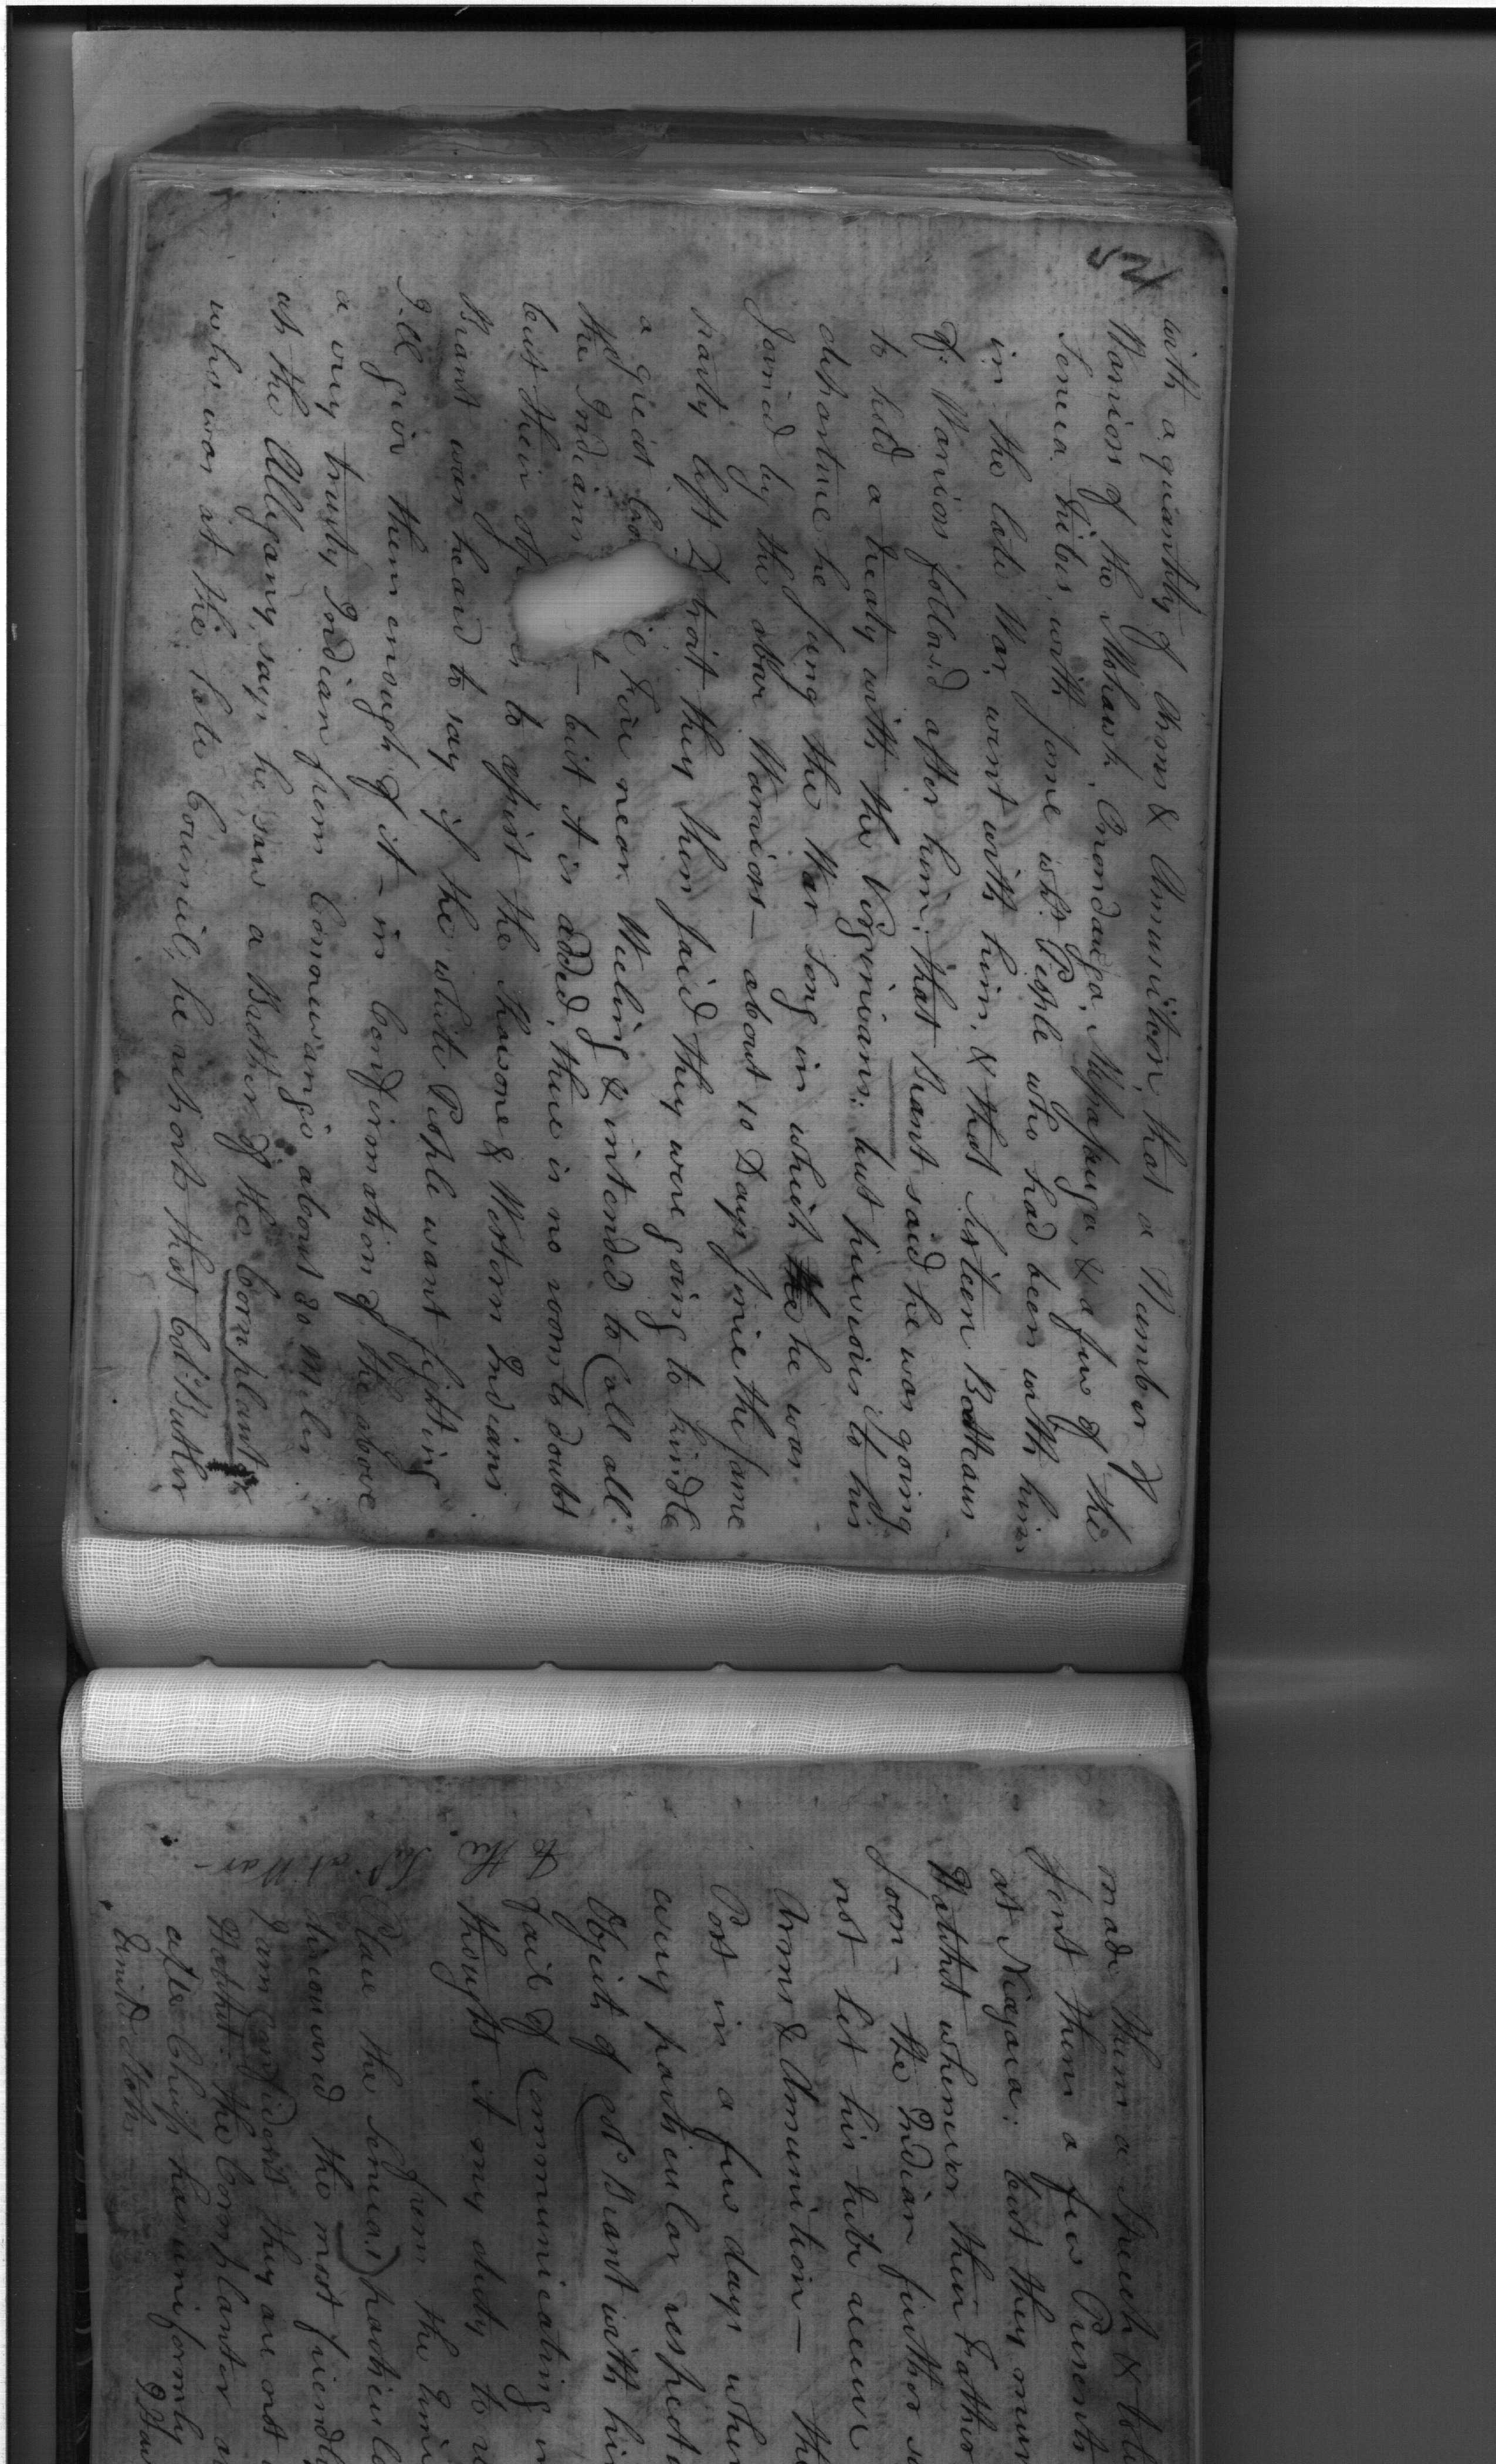 52
with a quantity of Arms & Amunition, that a Number of
Warriors of the Mohawk, Onondauga, Missasauga, & a few of the
Seneca Tribes, with some wht. People who had been with him
in the late War, went with him, & that sixteen Batteaus
of Warriors follow'd after him; that Brant said he was going
to hold a treaty with the Virginians; but previous to his
departure he sung the War Song in which the he was
Joined by the above Warriors — about 10 Days since the same
party left D troit they then said they were going to kindle
a great Co il Fire near Weeling & intended to Call all
the Indians — but it is added, there is no room to doubt
but their to assist the Shawone & Western Indians
Brant was heard to say if the white People want fighting
I'll give them enough of it — in Confirmation of the above
a very trusty Indian from Conowango about 30 Miles
up the Allegany, says he saw a Brother of the Cornplanter
who was at the late Council, he reports that Col. Butler
made them a Speech & told
sent them a few Presents
at Niagara: but they mus
Watchet whenever their Father
soon — the Indian further sa
not let his tribe receive
Arms & Amunition — the
Post in a few days when
very particular respecti
Object of Cpt. Brant with hi
fail of Communicating
thought it my duty to
from the Uni
Place the Senecas) particula
discovered the most friendl
I am confident they are not
the Cornplanter a
other Chiefs has uniformly
United States
to the
at War